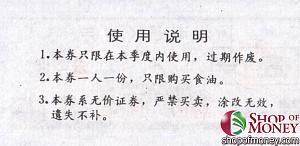 使用说明
1.本券只限在本季度内使用，过期作废。
2.本券一人一份，只限购买食油。
3.本券系无价证券，严禁买卖，涂改无效，
遗失不补。
SHOP OF
MONEY
shopofmoney.com